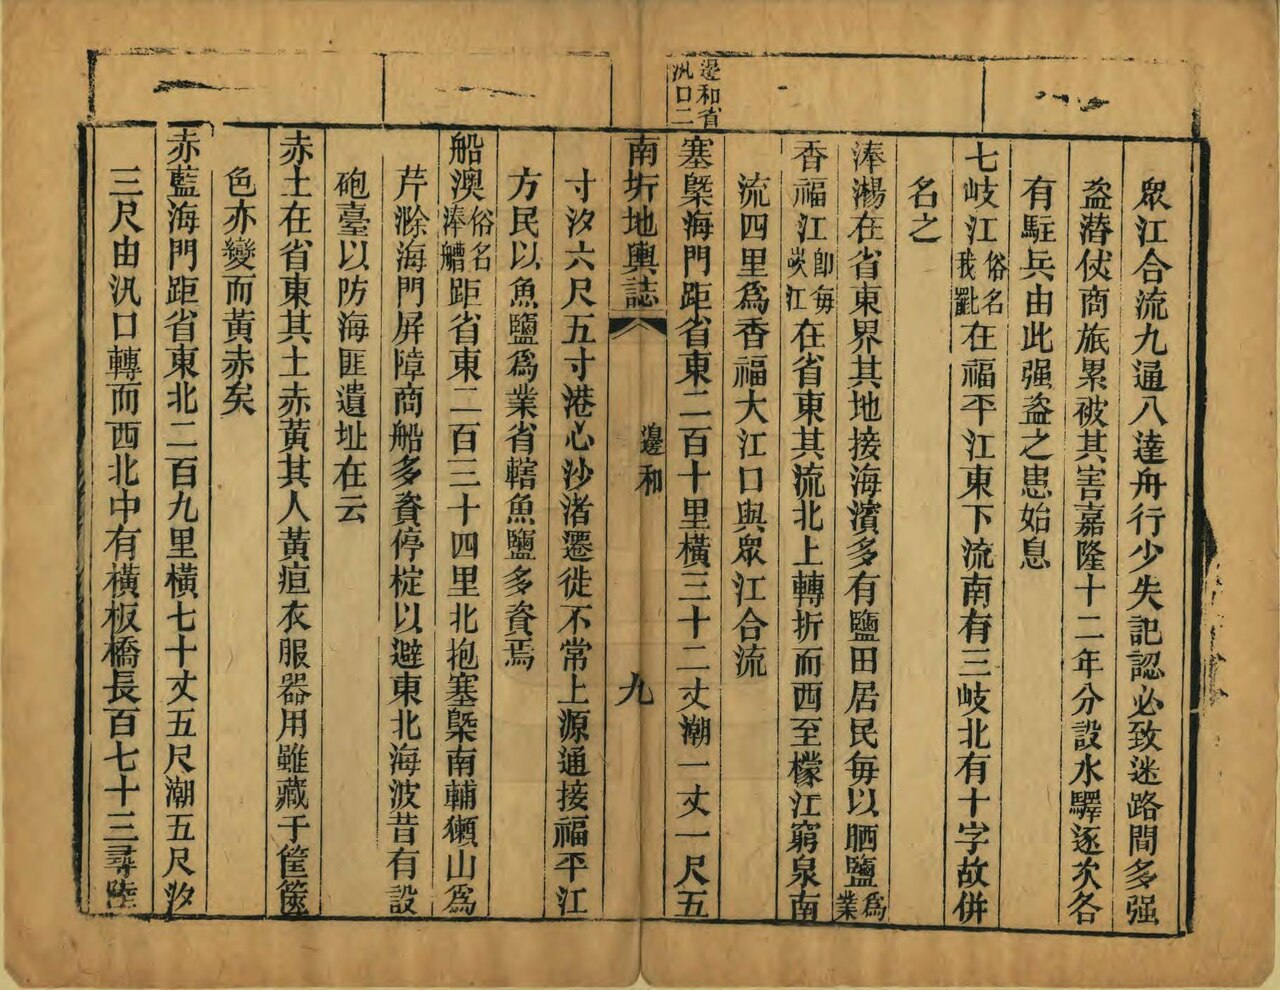 邊和省
汛口二
眾江合流九通八達舟行少失記認必致迷路間多强
盗潜伏商旅累被其害嘉隆十二年分設水驛逐次各
有駐兵由此强盗之患始息
七岐江俗名我在福平江東下流南有三岐北有十字故併
名之
湊濄在省東界其地接海濱多有鹽田居民每以晒鹽爲業
香福江卽每江在省東其流北上轉折而西至檬江窮泉南
流四里爲香福大江口與眾江合流
塞㮣海門距省東二百十里橫三十二丈潮一丈一尺五
南圻地輿誌
邊和
九
寸汐六尺五寸港心沙渚遷徙不常上源通接福平江
方民以魚鹽爲業省轄魚鹽多資焉
船澳俗名湊艚距省東二百三十四里北抱塞㮣南輔獺山爲
芹滁海門屏障商船多資停椗以避東北海波昔有設
砲臺以防海匪遺址在云
赤土在省東其土赤黃其人黃疸衣服器用雖藏于筐篋
色亦變而黃赤矣
赤藍海門距省東北二百九里橫七十丈五尺潮五尺汐
三尺由汛口轉而西北中有橫板橋長百七十三尋陸